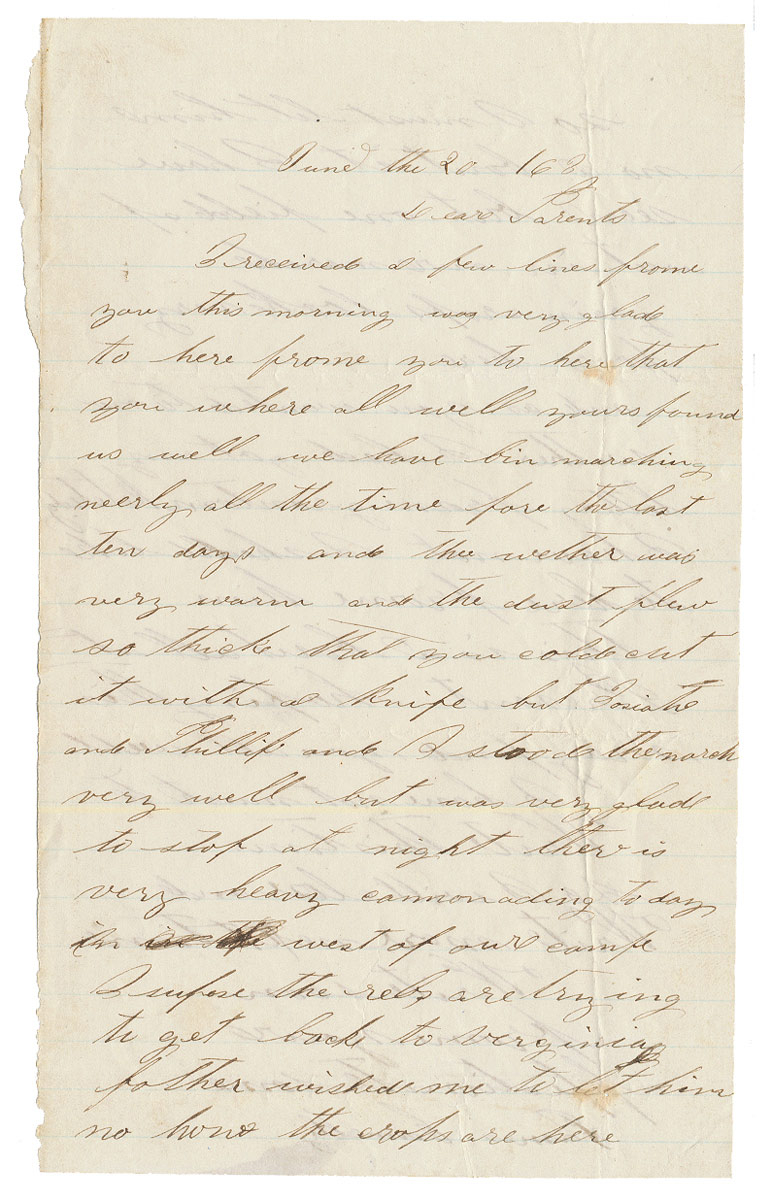 June the 20 163
Dear Parents
I received a few lines frome
you this morning was very glad
to here frome you to here that
you where all well yours found
us well we have bin marching
neerly all the time fore the last
ten days and the wether was
very warm and the dust flew
so thick that you colde cut
it with a knife but Josiah
and Phillip and I stood the march
very well but was very glad
to stop at night ther is
very heavy cannonading to day
in west of our campe
I supose the rebs are trying
to get back to verginia
father wished me to let him
no how the crops are here